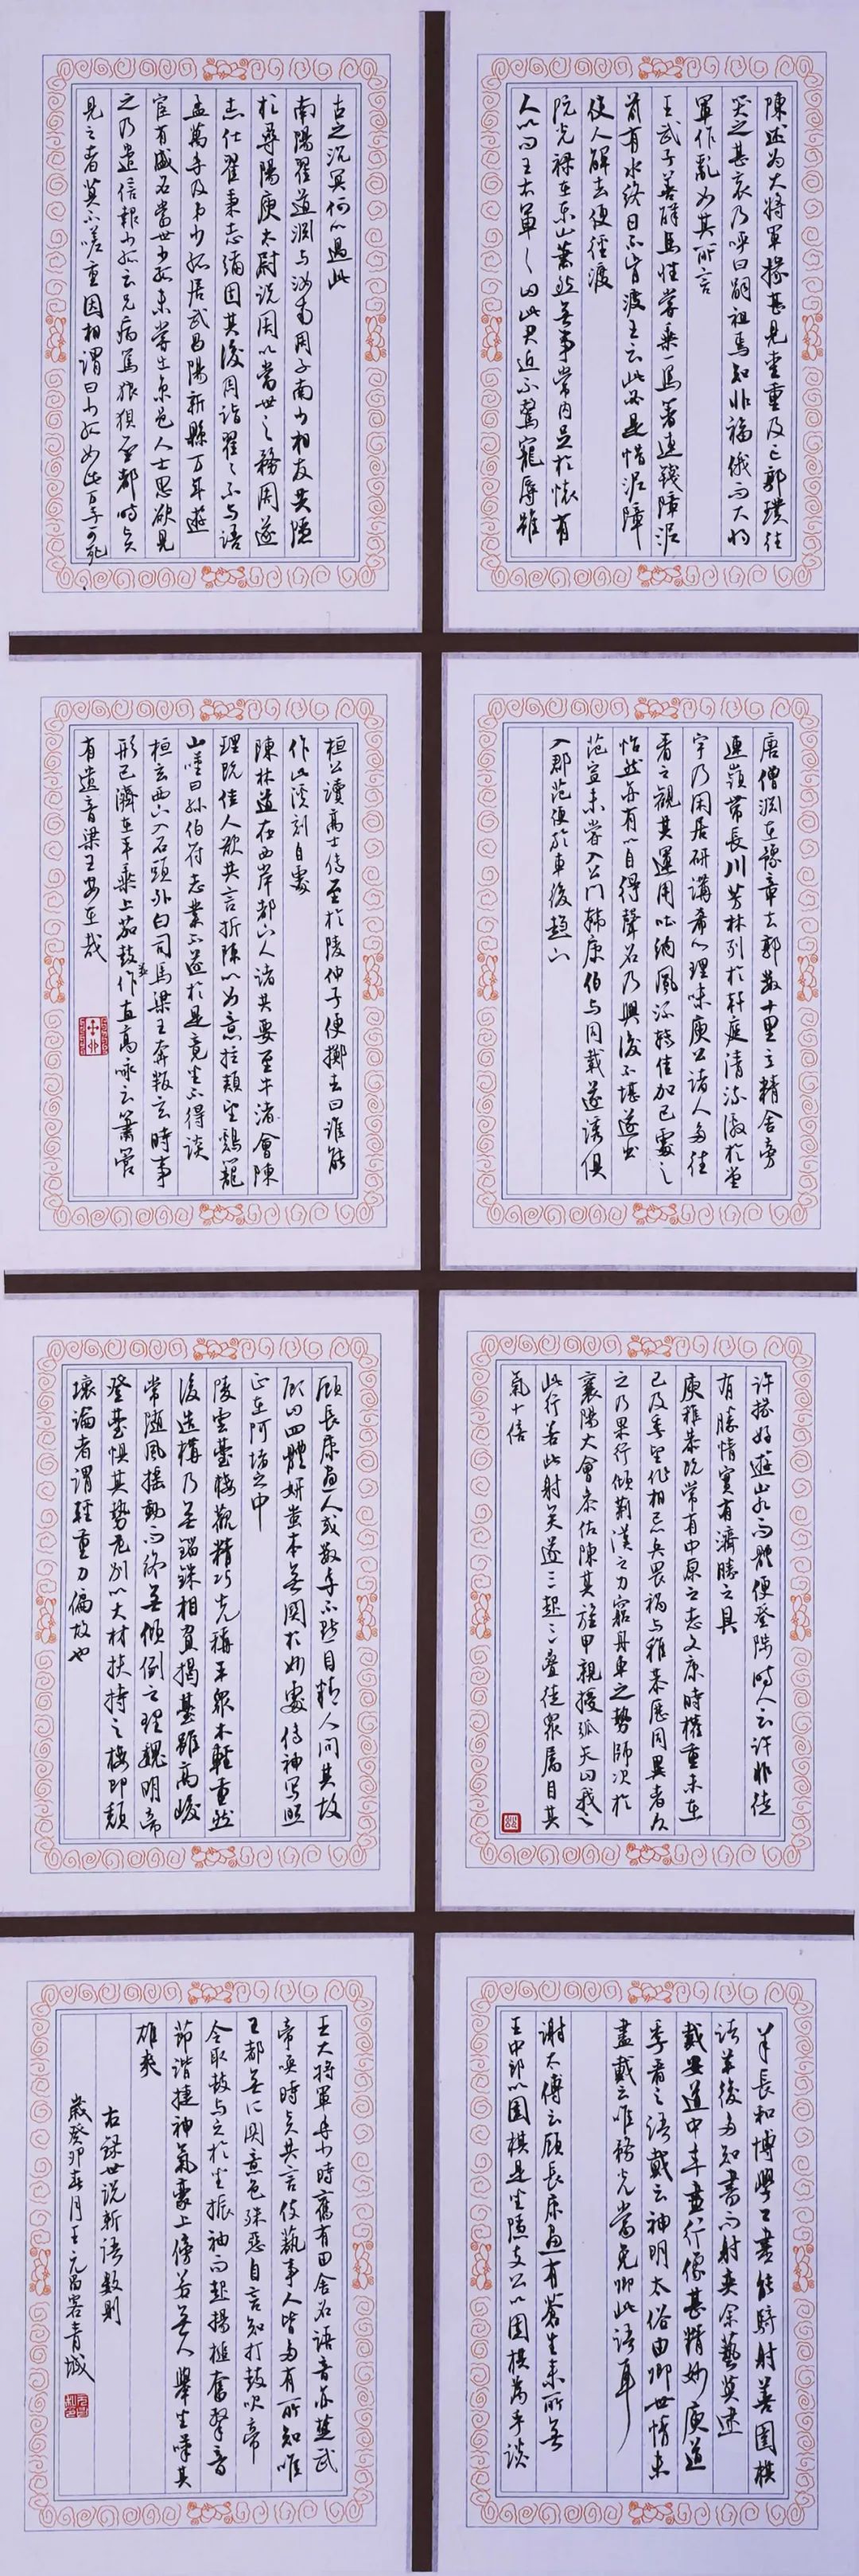 陳述为大將軍掾甚見愛重及亡郭璞往
哭之甚哀乃呼曰嗣祖焉知非福俄而大將
軍作亂如其所言
王武子善解馬性嘗乘一馬著連錢障泥
前有水終日不肯渡王云此必是惜泥障
使人解去便徑渡
阮光禄在东山蕭然無事常内足於懷有
人以问王右軍々曰此君近不驚寵辱雖
古之沉冥何以過此
南陽翟道淵与汝南周子南少相友共隱
於尋陽庾太尉说周以當世之務周遂
志仕翟秉志彌固其後周詣翟々不与語
孟萬年及弟少孤居武昌陽新縣万年遊
宦有盛名當世少孤未嘗出京邑人士思欲見
之乃遣信報少孤云兄病篤狼狽至都時賢
見之者莫不嗟重因相謂曰少孤如此万年可死
唐僧淵在豫章去郭數十里立精舍旁
連嶺帶長川芳林列於軒庭清流激於堂
宇乃閑居研講希心理味庾公諸人多往
看之觀其運用吐納風流轉佳加已處之
怡然亦有以自得聲名乃興後不堪遂出
范宣未嘗入公門韓康伯与同載遂誘俱
入郡范便於車後趨下
桓公讀高士傳至於陵仲子便擲去曰誰能
作此溪刻自處
陳林道在西岸都下人諸共要至牛渚會陳
理既佳人欲共言折陳以如意拄頰望鷄籠
山嘆曰孫伯符志業不遂於是竟坐不得談
桓玄西下入石頭外白司馬梁王奔叛玄時事
形已濟在平乘上笳鼓並作直高咏云簫管
有遺音梁王安在哉
許掾好遊山水而體便登陟時人云許非徒
有勝情實有濟勝之具
庾稚恭既常有中原之志文康時權重未在
己及季堅作相忌兵畏禍与稚恭歷同異者久
之乃果行傾荆漢之力窮舟車之勢師次於
襄陽大會參佐陳其旌甲親授弧矢曰我之
此行若此射矣遂三起三疊徒衆屬目其
氣十倍
顧長康畫人或數年不點目精人问其故
顧曰四體妍蚩本無關於妙處傳神寫照
正在阿堵之中
陵雲臺樓觀精巧先稱平衆木輕重然
後造構乃無錙銖相負揭臺雖高峻
常隨風搖動而終無傾倒之理魏明帝
登臺懼其勢危别以大材扶持之樓即頹
壞論者謂輕重力偏故也
羊長和博學工書能騎射善圍棋
諸羊後多知書而射奕余藝莫逮
戴安道中年畫行像甚精妙庾道
季看之語戴云神明太俗由卿世情未
盡戴云唯務光當免卿此語耳
謝太傅云顧長康畫有蒼生来所無
王中郎以圍棋是坐隱支公以圍棋為手談
王大將軍年少時舊有田舍名語音亦楚武
帝喚時賢共言伎藝事人皆多有所知唯
王都無所關意色殊惡自言知打鼓吹帝
令取鼓与之於坐振袖而起揚槌奮擊音
節諧捷神氣豪上傍若無人舉坐嘆其
雄爽
右録世説新語數則
歲癸卯春月王元昌客青城